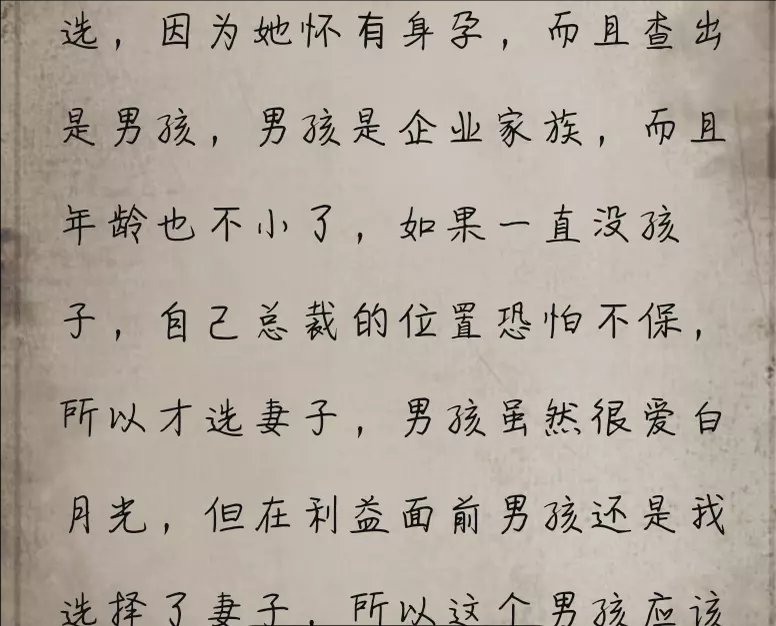 选，因为她怀有身孕，而且查出
是男孩，男孩是企业家族，而且
年龄也不小了，如果一直没孩
子，自己总裁的位置恐怕不保，
所以才选妻子，男孩虽然很爱白
月光，但在利益面前男孩还是我
选择了妻子，所以这个男孩应该